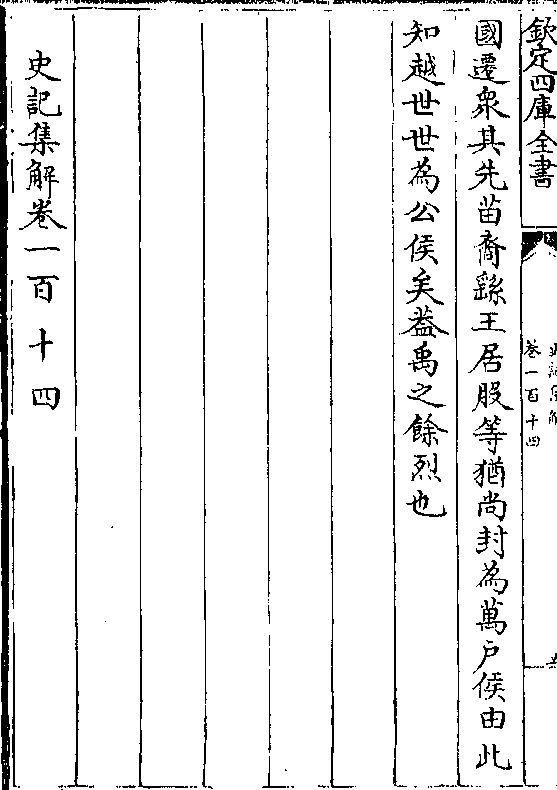 欽定四庫全書
卷一百十四
國遷衆其先苗裔繇王居股等猶尚封為萬戸侯由此
知越世世為公侯矣葢禹之餘烈也
史記集解卷一百十四